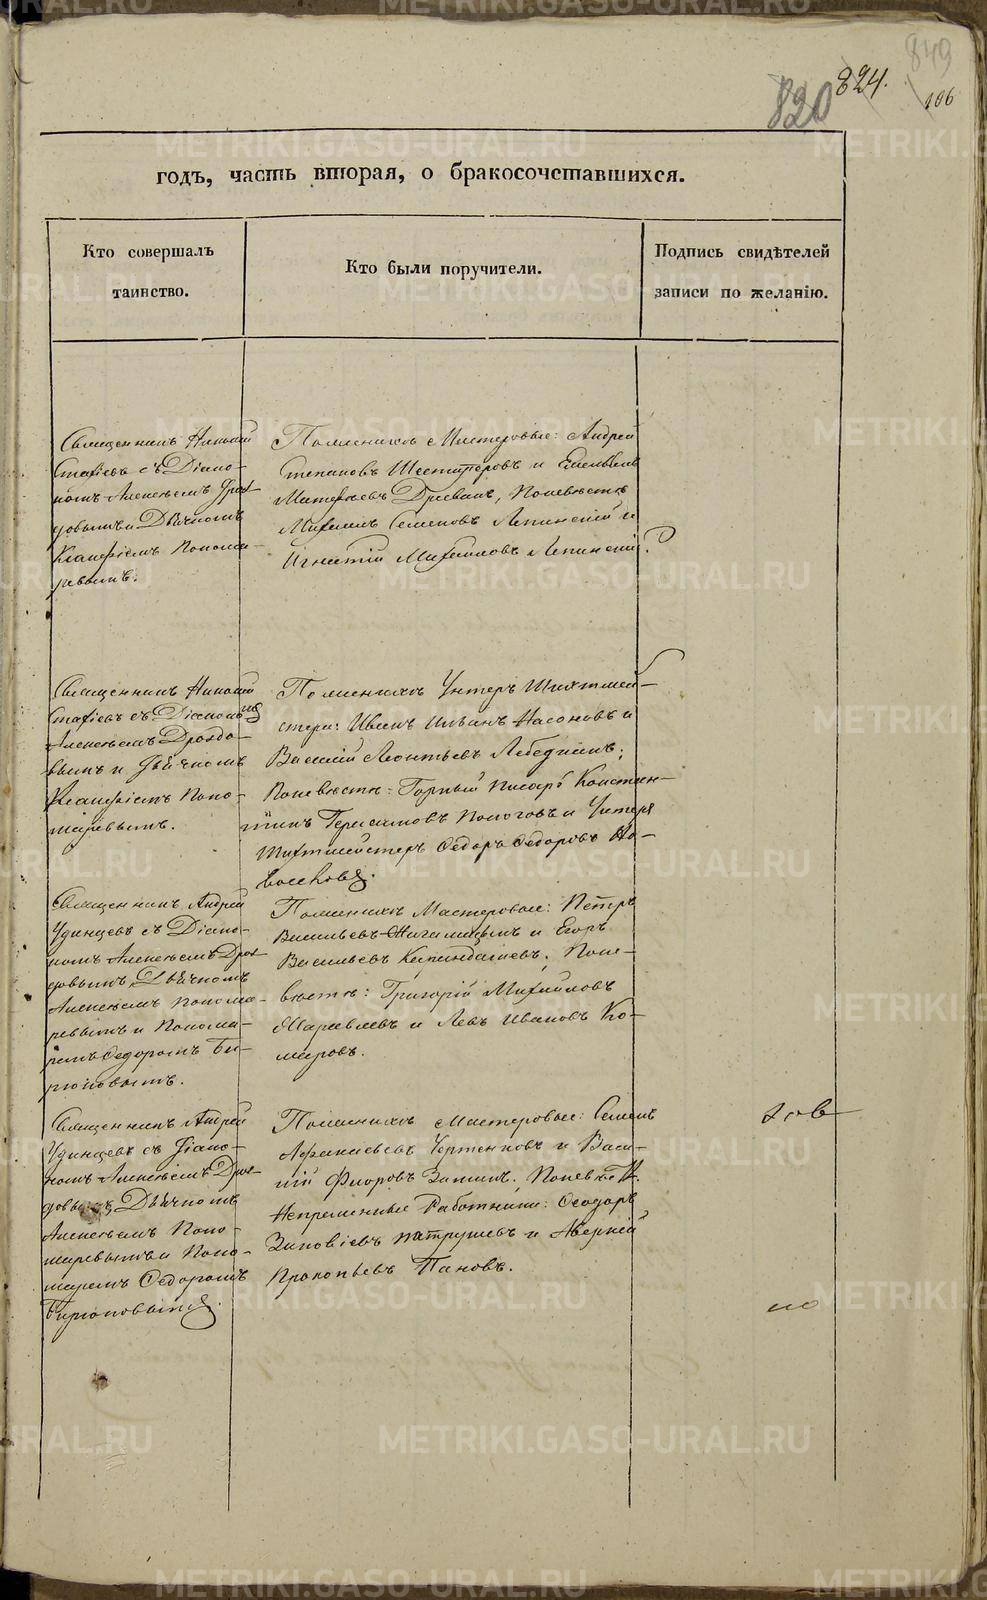 849
820 824.
106
годъ, часть вторая, о бракосочетавшихся.
Кто совершалъ
таинство.
Кто были поручители.
Подпись свидѣтелей
записи по желанію.
Священникъ Николай
съ Діако-
номъ Алексѣемъ Дроз-
довымъ и Дьячкомъ
Пономо-
ревымъ.
По женихѣ Мастеровые: Андрей
Степановъ Шестперовъ и
Матвѣевъ, По невѣстѣ
Михаилъ Семеновъ Ляпинскій и
Игнатій Михайловъ Ляпинскій.
Священникъ Николай
съ Діакономъ
Алексѣемъ Дроздо-
вымъ и Дьячкомъ
Поно-
маревымъ.
По женихѣ Унтеръ Шихтмей-
стера: Иванъ Насоновъ и
Василій Леонтьевъ Лебедкинъ;
По невѣстѣ: Горный Писарь Констан-
тинъ Герасимовъ и Унтеръ
Шихтмейстеръ Ѳедоръ Ѳедоровъ
Священникъ Андрей
Удинцевъ съ Діако-
номъ Алексѣемъ Дроз-
довымъ, Дьячкомъ
Алексѣемъ Понома-
ревымъ и Понома-
ремъ Ѳедоромъ Би-
рюковымъ.
По женихѣ Мастеровые: Петръ
Васильевъ и Егоръ
Васильевъ; По не-
вѣстѣ: Григорій Михайловъ
и Левъ Ивановъ Ко-
маровъ.
Священникъ Андрей
Удинцевъ съ Діако-
номъ Алексѣемъ Дроз-
довымъ, Дьячкомъ
Алексѣемъ Поно-
маревымъ и Поно-
маремъ Ѳедоромъ
Бирюковымъ.
По женихѣ Мастеровые: Семенъ
Афанасьевъ Чертенковъ и Васи-
лій Флоровъ Зотинъ. По невѣстѣ
Непременные Работники: Ѳеодоръ
Зиновіевъ Патрушевъ и Аверкій
Прокопьевъ Пановъ.
METRIKI.GASO-URAL.RU